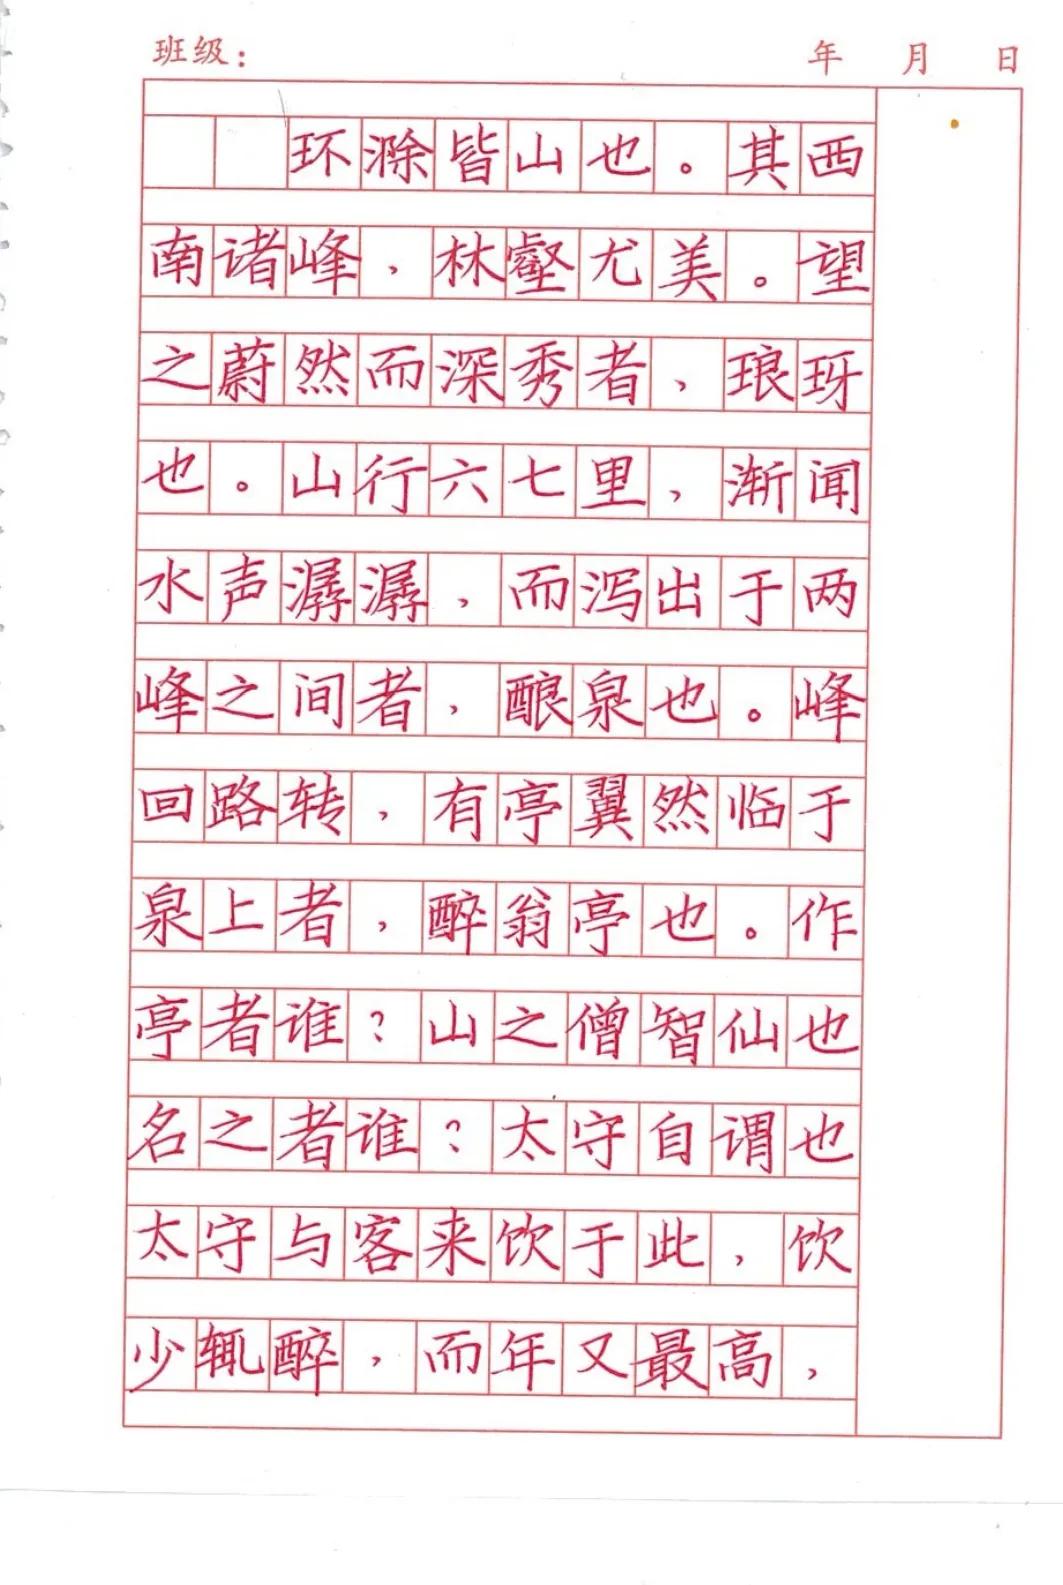 班级： 年 月 日
环滁皆山也。其西
南诸峰，林壑尤美。望
之蔚然而深秀者，琅玡
也。山行六七里，渐闻
水声潺潺，而泻出于两
峰之间者，酿泉也。峰
回路转，有亭翼然临于
泉上者，醉翁亭也。作
亭者谁？山之僧智仙也
名之者谁？太守自谓也
太守与客来饮于此，饮
少辄醉，而年又最高，